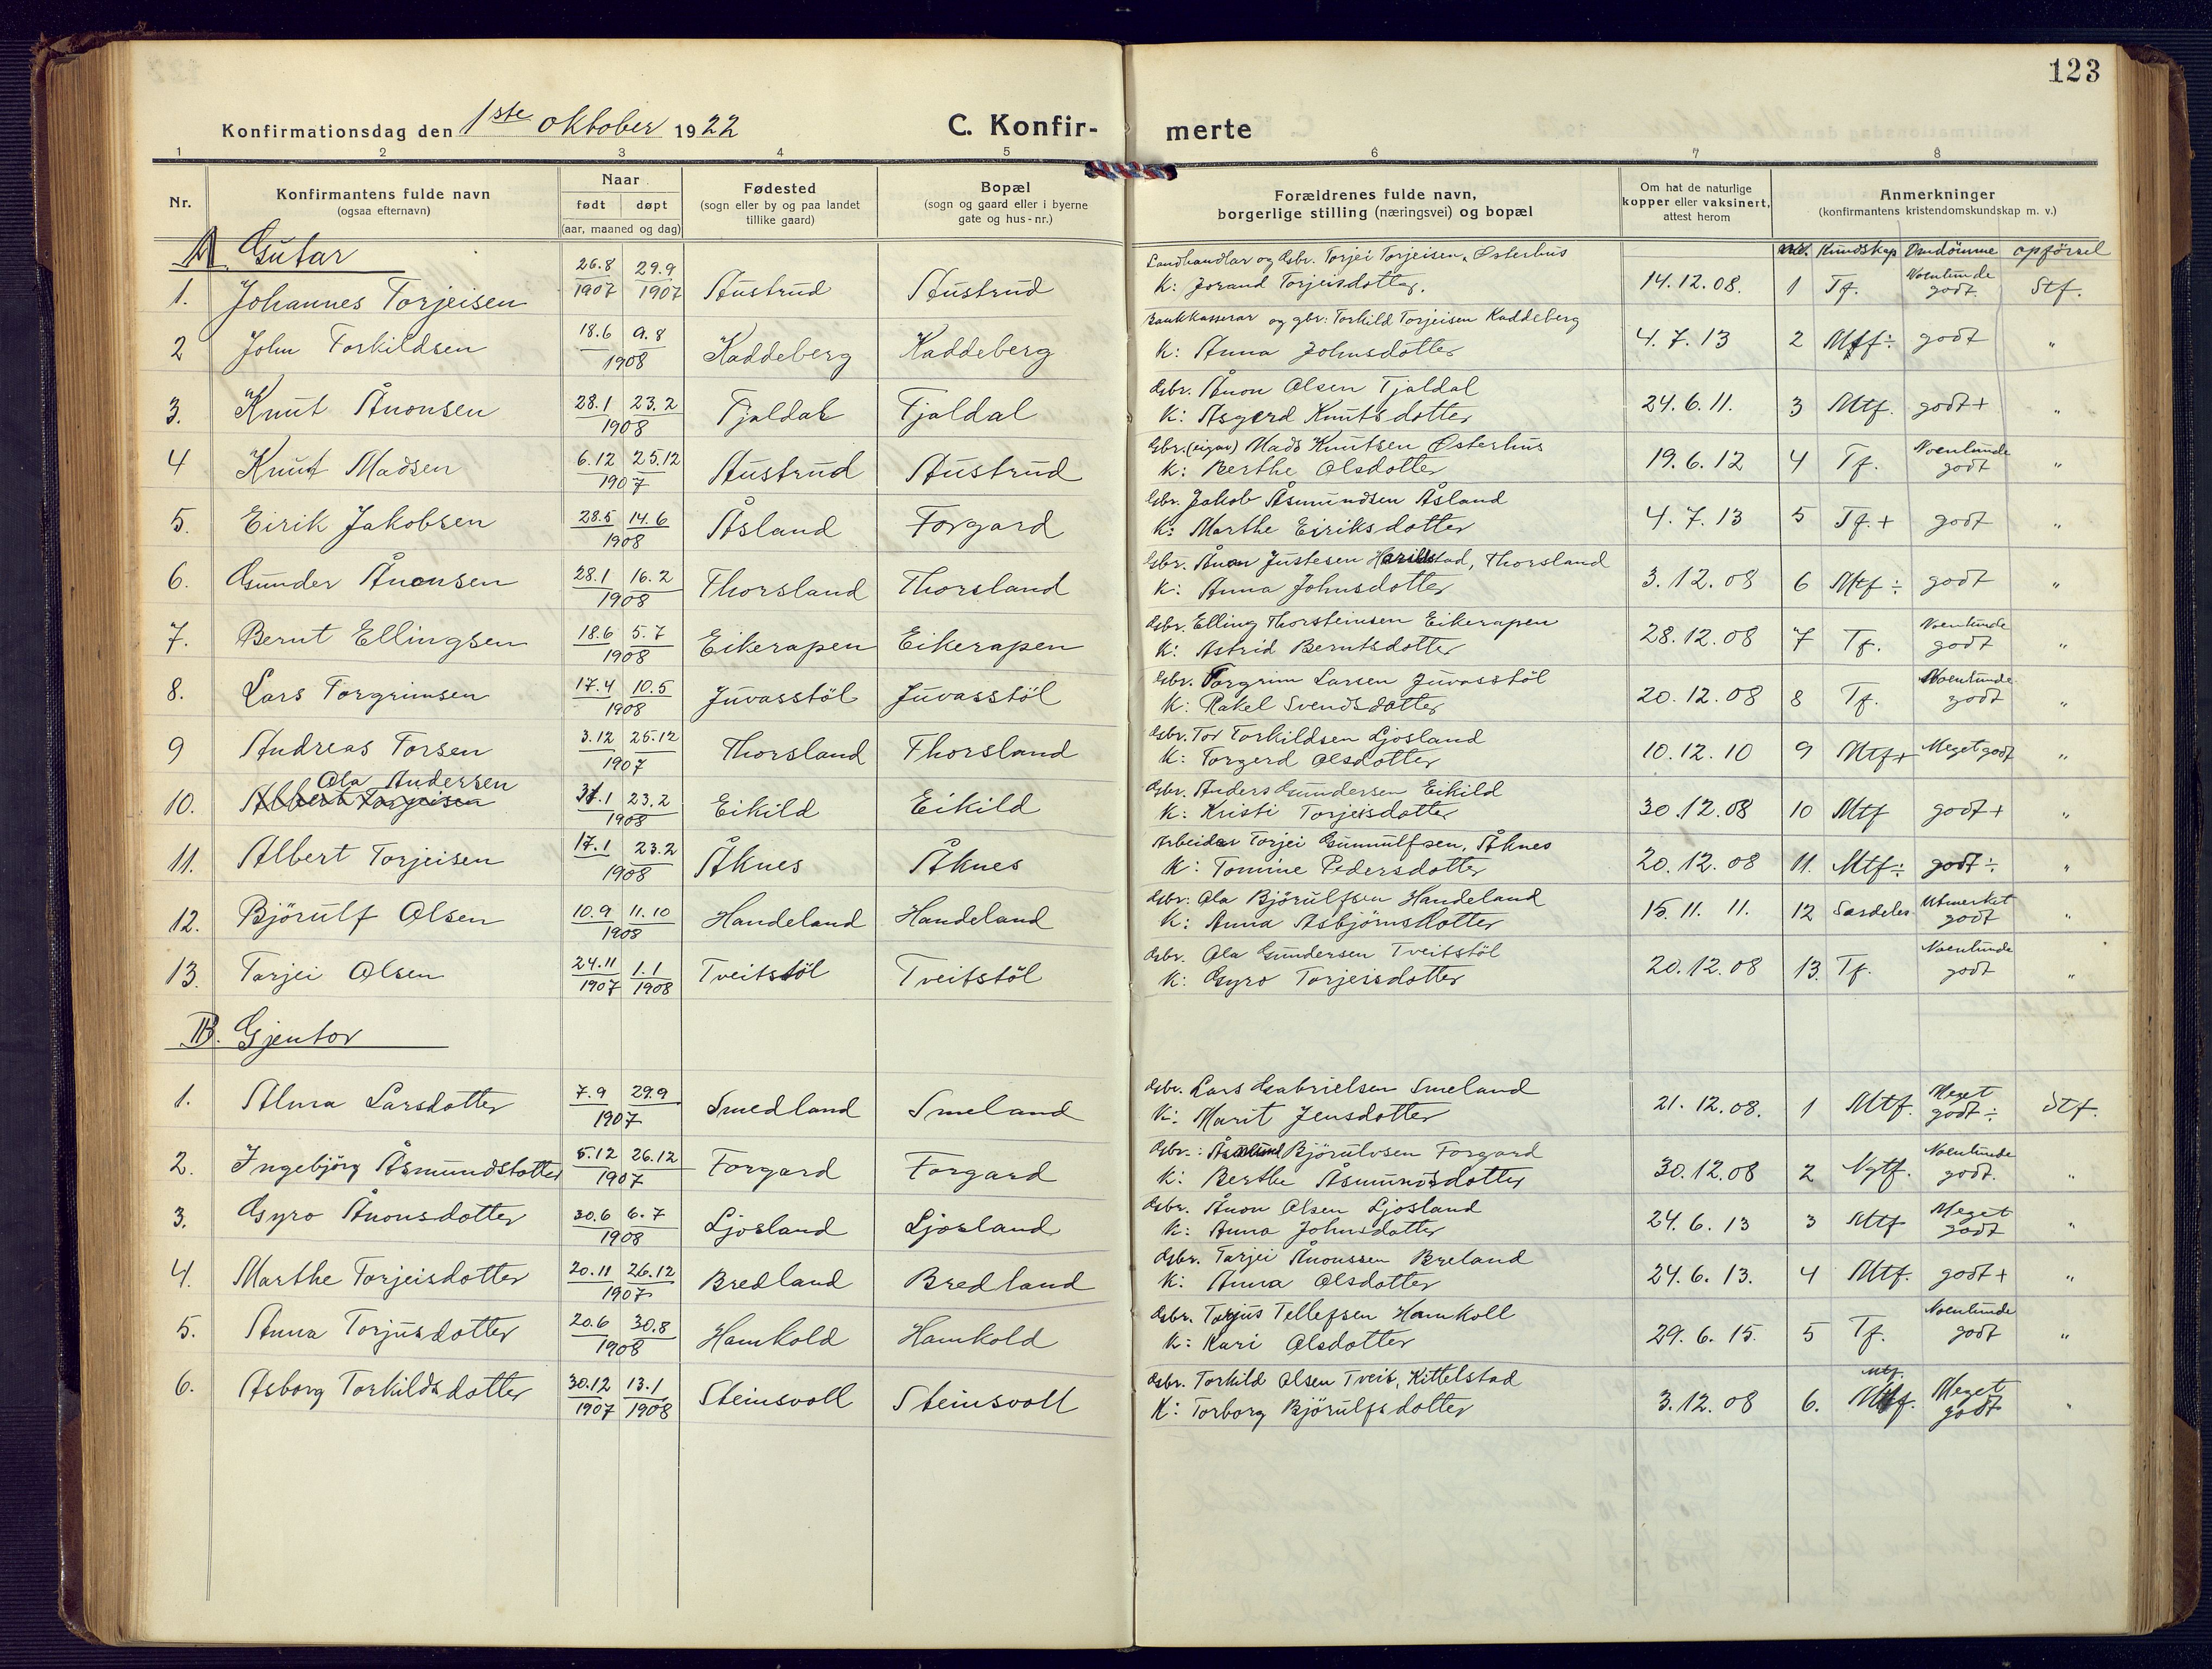 123
Konfirmationsdag den 1ste oktober 1922
C. Konfir- merte
1 2 3 4 5 6 7 8
Nr.
Konfirmantens fulde navn
(ogsaa efternavn)
Naar
født døpt
(aar, maaned og dag)
Fødested
(sogn eller by og paa landet
tillike gaard)
Bopæl
(sogn og gaard eller i byerne
gate og hus-nr.)
Forældrenes fulde navn,
borgerlige stilling (næringsvei) og bopæl
Om hat de naturlige
kopper eller vaksinert,
attest herom
Anmerkninger
(konfirmantens kristendomskundskap m. v.)
A. Gutar
Kundskap Omdömme opförsel
1. Johannes Torjeisen 26.8 1907 29.9 1907 Austrud Austrud Landhandlar og Gbr. Torjei Torjeisen, Østerhus
K: Jorand Torjeisdotter. 14.12.08. 1 Tf. Noenlunde godt. Stf.
2 John Torkildsen 18.6 9.8 1908 Kaddeberg Kaddeberg Bankkasserar og gbr: Torkild Torjeisen Kaddeberg
K: Anna Johnsdotter 4.7.13 2 Mtf÷ godt "
3. Knut Ånonsen 28.1 23.2 1908 Fjaldal Fjaldal Gbr. Ånon Olsen Fjaldal
K: Asgerd Knutsdotter 24.6.11. 3 Mtf. godt+ "
4 Knut Madsen 6.12 25.12 1907 Austrud Austrud Gbr. (eigar) Mads Knutsen Østerhus
K: Berthe Olsdotter 19.6.12 4 Tf. Noenlunde godt "
5. Eirik Jakobsen 28.5 14.6 1908 Åsland Forgard Gbr. Jakob Åsmundsen Åsland
K: Marthe Eiriksdotter 4.7.13 5 Tf.+ godt "
6. Gunder Ånonsen 28.1 16.2 1908 Thorsland Thorsland Gbr. Ånon Justesen Harilstad, Thorsland
K: Anna Johnsdotter 3.12.08 6 Mtf÷ godt "
7. Bernt Ellingsen 18.6 5.7 1908 Eikerapen Eikerapen Gbr. Elling Thorsteinsen Eikerapen
K: Astrid Berntsdotter 28.12.08 7 Tf. Noenlunde godt "
8. Lars Torgrimsen 17.4 10.5 1908 Juvasstöl Juvasstöl Gbr. Torgrim Larsen Juvasstöl
K: Rakel Svendsdotter 20.12.08 8 Tf. Noenlunde godt "
9 Andreas Torsen 3.12 25.12 1907 Thorsland Thorsland Gbr. Tor Torkildsen Ljosland
K: Torgerd Olsdotter 10.12.10 9 Mtf+ Meget godt "
Ola Andersen
10. Albert Torjeisen 31.1 23.2 1908 Eikild Eikild Gbr. Anders Gundersen Eikild
K: Kristi Torjeisdotter 30.12.08 10 Mtf godt+ "
11. Albert Torjeisen 17.1 23.2 1908 Åknes Åknes Arbeidar Torjei Gunnulfsen, Åknes
K: Tomine Pedersdotter 20.12.08 11. Mtf÷ godt÷ "
12. Björulf Olsen 10.9 11.10 1908 Handeland Handeland Gbr. Ola Björulfsen Handeland
K: Anna Asbjörnsdotter 15.11.11. 12 Særdeles Utmerket godt "
13. Tarjei Olsen 24.11 1907 1.1 1908 Tveitstöl Tveitstöl Gbr. Ola Gundersen Tveitstöl
K: Gyro Torjeisdotter 20.12.08 13. Tf. Noenlunde godt "
B. Gjentor
1. Alma Larsdotter 7.9 29.9 1907 Smedland Smeland Gbr. Lars Gabrielsen Smeland
K: Marit Jensdotter 21.12.08. 1 Mtf. Meget godt÷ Stf.
2. Ingebjörg Åsmundsdotter 5.12 26.12 1907 Forgard Forgard Gbr.: Åsmund Björulvsen Forgard
K: Berthe Åsmundsdotter 30.12.08 2 Ngtf. Noenlunde godt. "
3. Gyro Ånonsdotter 30.6 6.7 1908 Ljosland Ljosland Gbr. Ånon Olsen Ljosland
K: Anna Johnsdotter 24.6.13 3 Mtf Meget godt "
4. Marthe Torjeisdotter 20.11 26.12 1907 Bredland Bredland Gbr. Tarjei Ånonssen Breland
K: Anna Olsdotter 24.6.13. 4 Mtf. godt+ "
5. Anna Torjusdotter 20.6 30.8 1908 Hamkold Hamkold Gbr. Torjus Tellefsen Homkoll
K: Kari Olsdotter 29.6.15. 5 Tf. Noenlunde godt "
6. Asborg Torkildsdotter 30.12 1907 13.1 1908 Steinsvoll Steinsvoll Gbr. Torkild Olsen Tveit, Kittelstad
K: Torborg Björulfsdotter 3.12.08 6. Mtf. Meget godt "